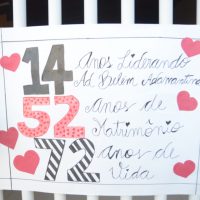 14 Anos Liderando
Ad Belém Adamantina
52 anos de
Matrimônio
72 anos de
Vida